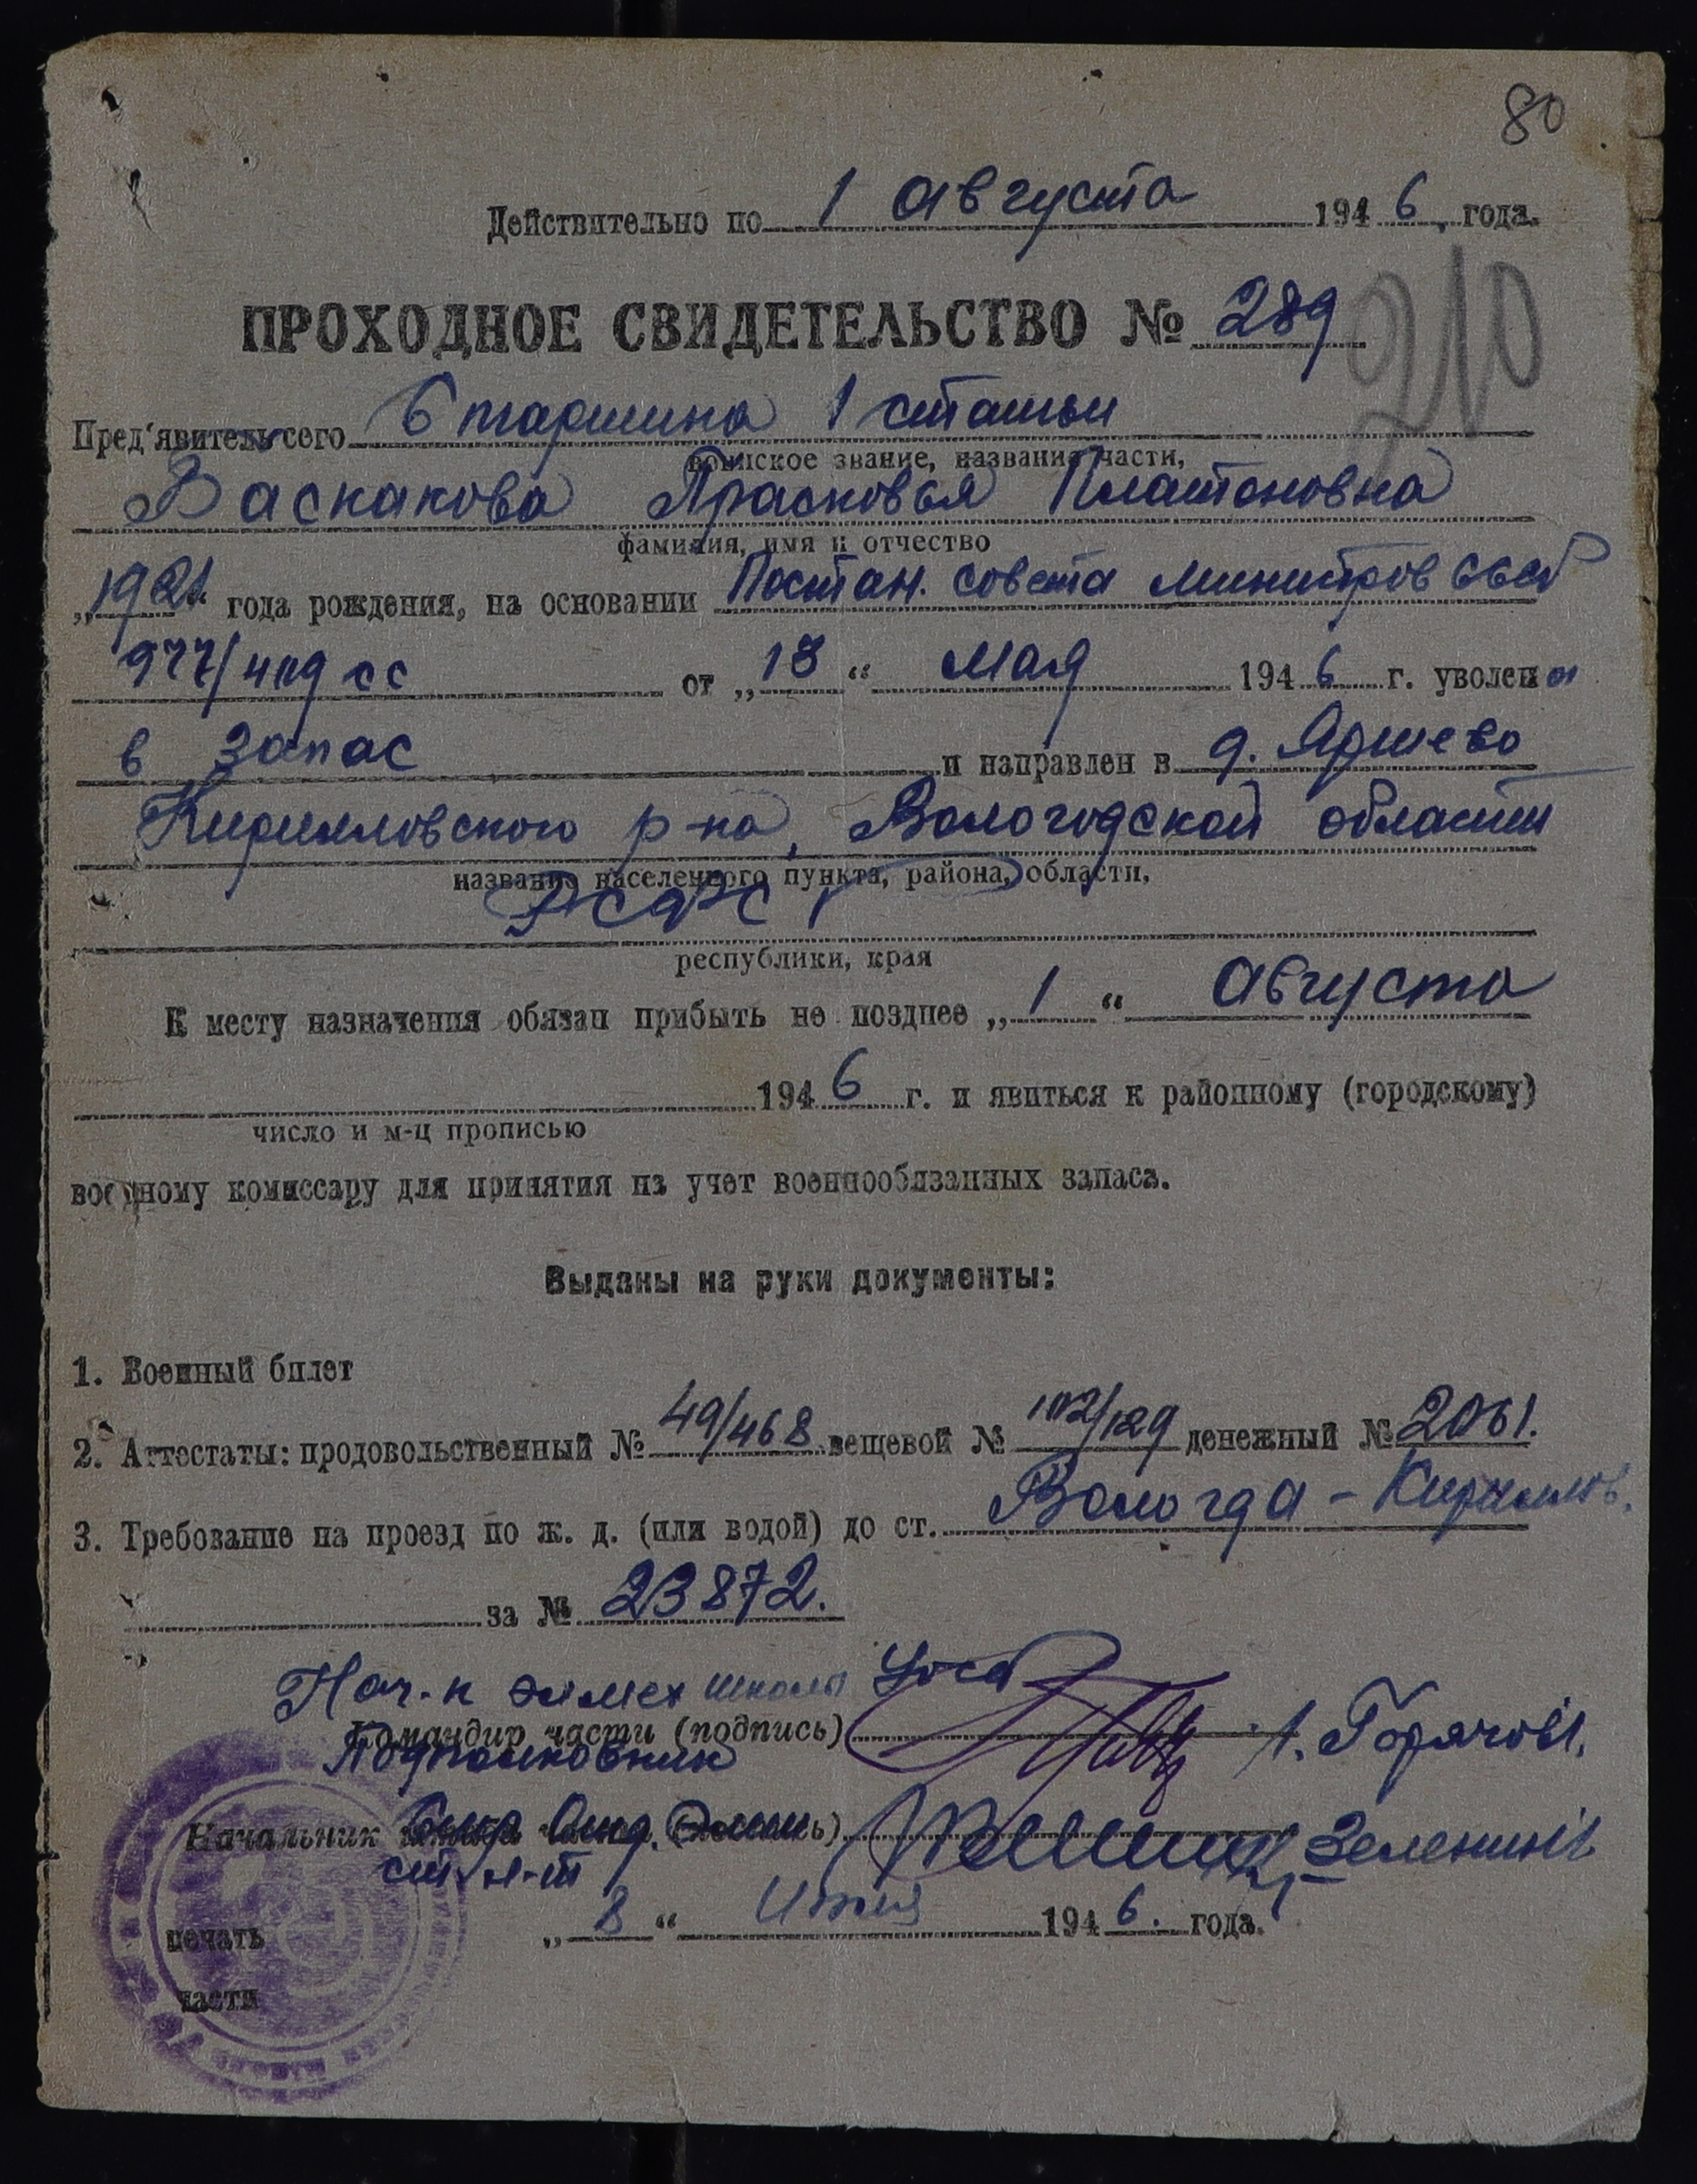 80
Действительно по 1 августа 1946 года.
ПРОХОДНОЕ СВИДЕТЕЛЬСТВО № 289
210
Пред'явитель сего Старшина 1 статьи
воинское звание, название части,
Васкакова Прасковья Платоновна
фамилия, имя и отчество
„1921“ года рождения, на основании Постан. совета министров ССР
977/419 сс от „13“ мая 1946 г. уволена
в запас и направлен в д. Яршево
Кирилловского р-на, Вологодской области
название населенного пункта, района, области,
РСФСР
республики, края
К месту назначения обязан прибыть не позднее „1“ августа
1946 г. и явиться к районному (городскому)
число и м-ц прописью
военному комиссару для принятия на учет военнообязанных запаса.
Выданы на руки документы:
1. Военный билет
2. Аттестаты: продовольственный № 49/468 вещевой № 102/129 денежный № 2061.
3. Требование на проезд по ж. д. (или водой) до ст. Вологда - Кириллов.
за № 23872.
Нач-к элмех школы
Командир части (подпись) /. Горячов/.
Подполковник
Начальник
ст. л-т Зеленин/
„8“ Июля 1946. года.
печать
части